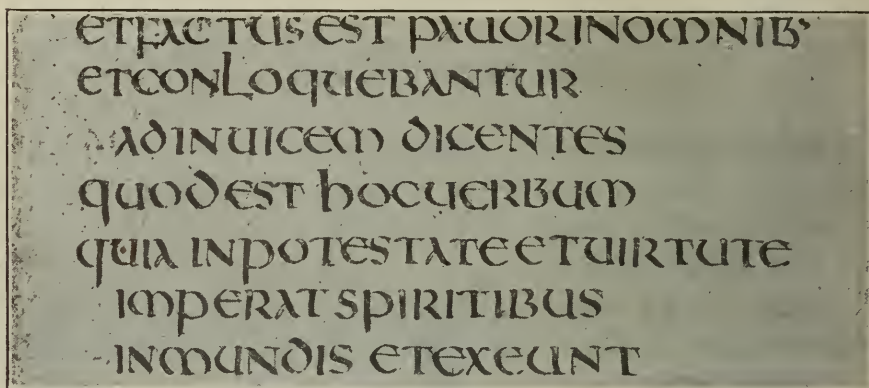 ETFACTUS EST PAUOR INOMNIB'
ETCONLOQUEBANTUR
ADINUICEM DICENTES
QUODEST HOCUERBUM
QUIA INPOTESTATE ETUIRTUTE
IMPERAT SPIRITIBUS
INMUNDIS ETEXEUNT